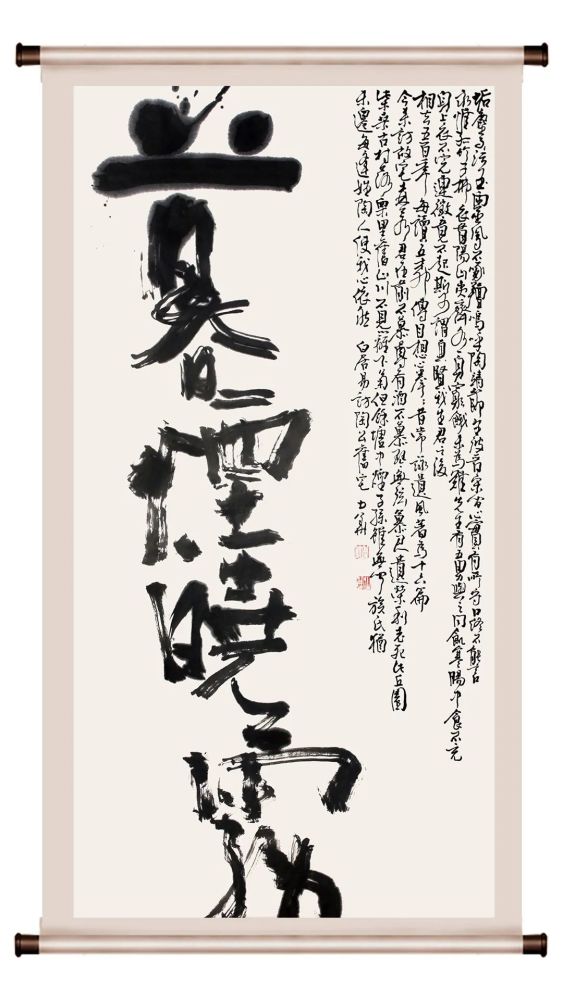 垢塵不污玉靈鳳不啄羶嗚呼陶靖節生彼晉宋間心實有所守口終不能言
永惟孤竹子拂衣首陽山夷齊各一身窮餓未為難先生有五男與之同飢寒腸中食不充
身上衣不完連徵竟不起斯可謂真賢我生君之後
相去五百年每讀五柳傳目想心拳拳昔常詠遺風著為十六篇
今來訪故宅森若君在前不慕尊有酒不慕琴無弦慕君遺榮利老死此丘園
柴桑古村落栗里舊山川不見籬下菊但餘墟中煙子孫雖無聞族氏猶
未遷每逢姓陶人使我心依然 白居易訪陶公舊宅
暮煙曉霧